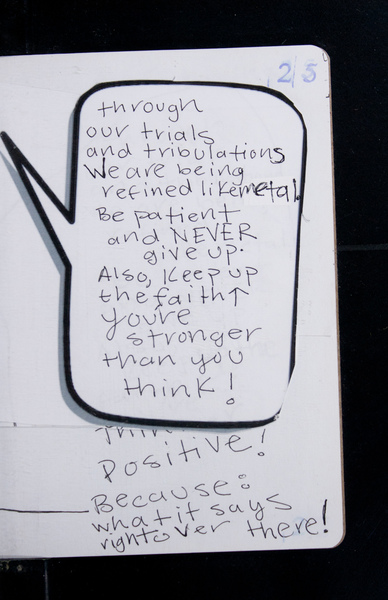 2/5
through
our trials
and tribulations
We are being
refined like metal.
Be patient
and NEVER
give up.
Also, Keep up
the faith↑
you're
stronger
than you
think!
Think
Positive!
Because:
what it says
right over there!